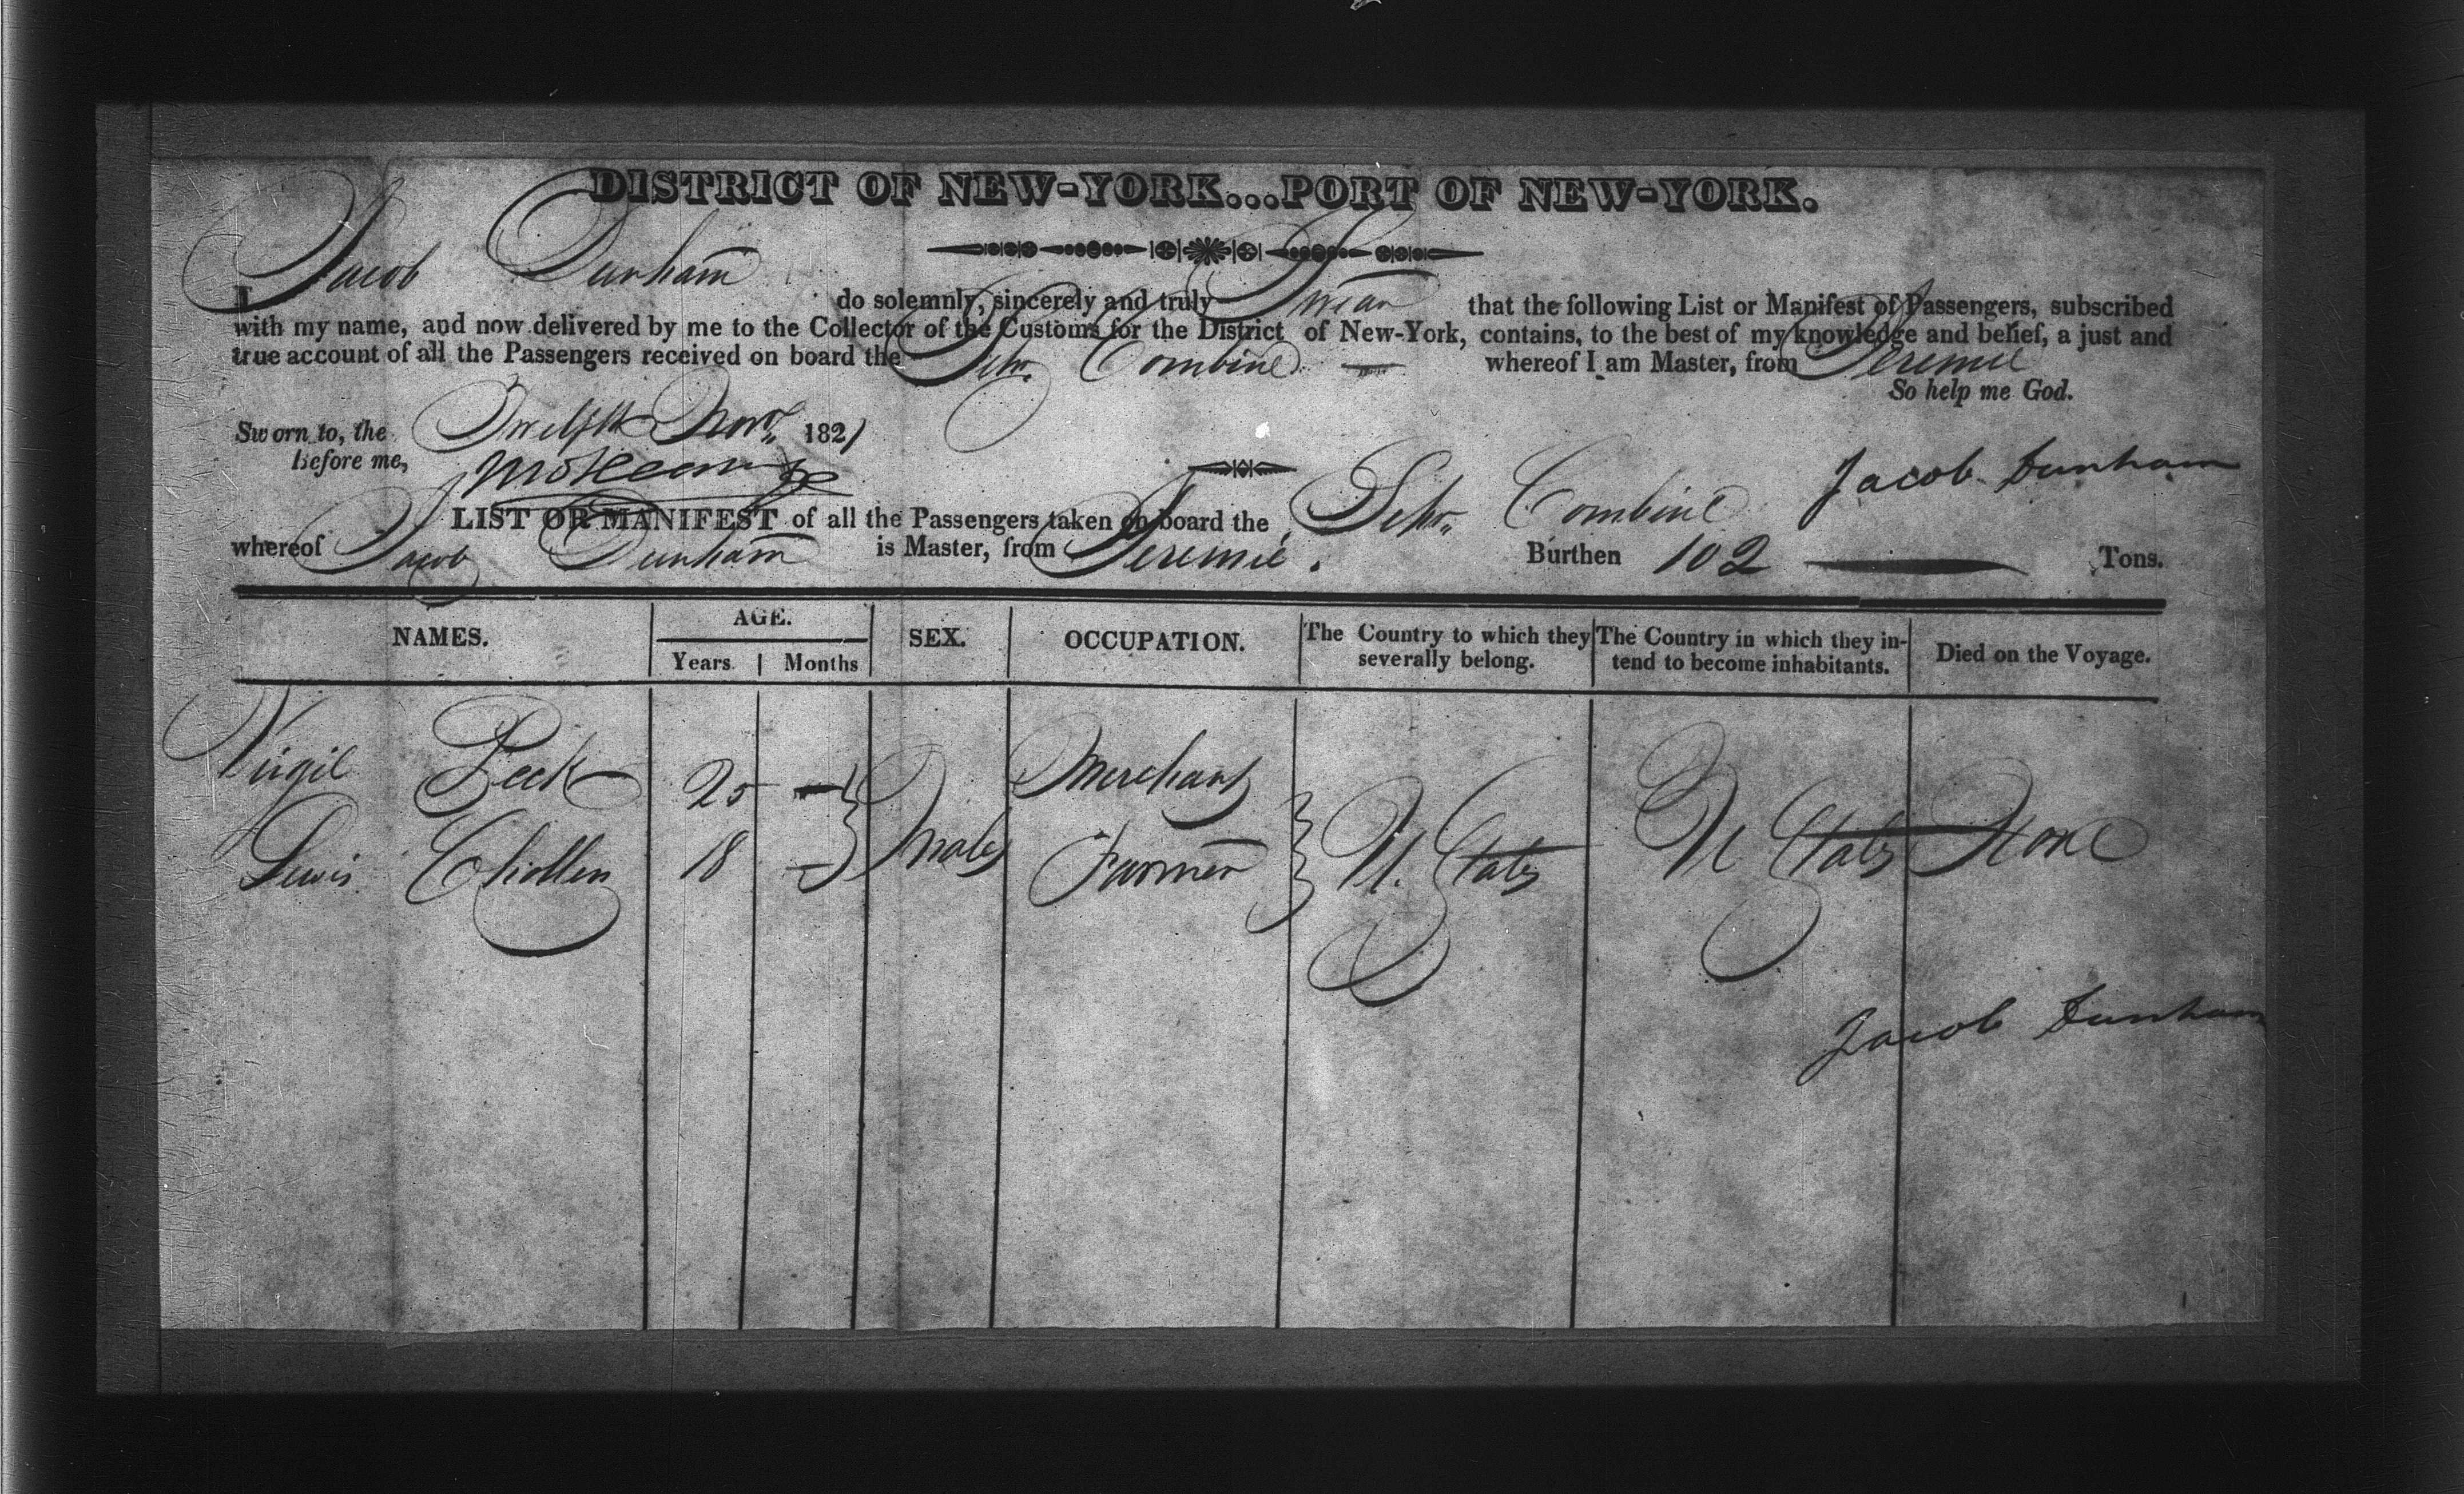 DISTRICT OF NEW-YORK...PORT OF NEW-YORK.
I Jacob Dunham do solemnly, sincerely and truly Swear that the following List or Manifest of Passengers, subscribed
with my name, and now delivered by me to the Collector of the Customs for the District of New-York, contains, to the best of my knowledge and belief, a just and
true account of all the Passengers received on board the Schr. Combine whereof I am Master, from Jeremie
So help me God.
Sworn to, the Twelfth Novr. 1821
Before me,
Jacob Dunham
LIST OR MANIFEST of all the Passengers taken on board the Schr. Combine
whereof Jacob Dunham is Master, from Jeremie. Burthen 102 Tons.
NAMES. AGE. SEX. OCCUPATION. The Country to which they severally belong. The Country in which they intend to become inhabitants. Died on the Voyage.
Years. Months
Virgil Peck 25 — Merchant
Lewis 18 — Males Farmer U. States U States None
Jacob Dunham